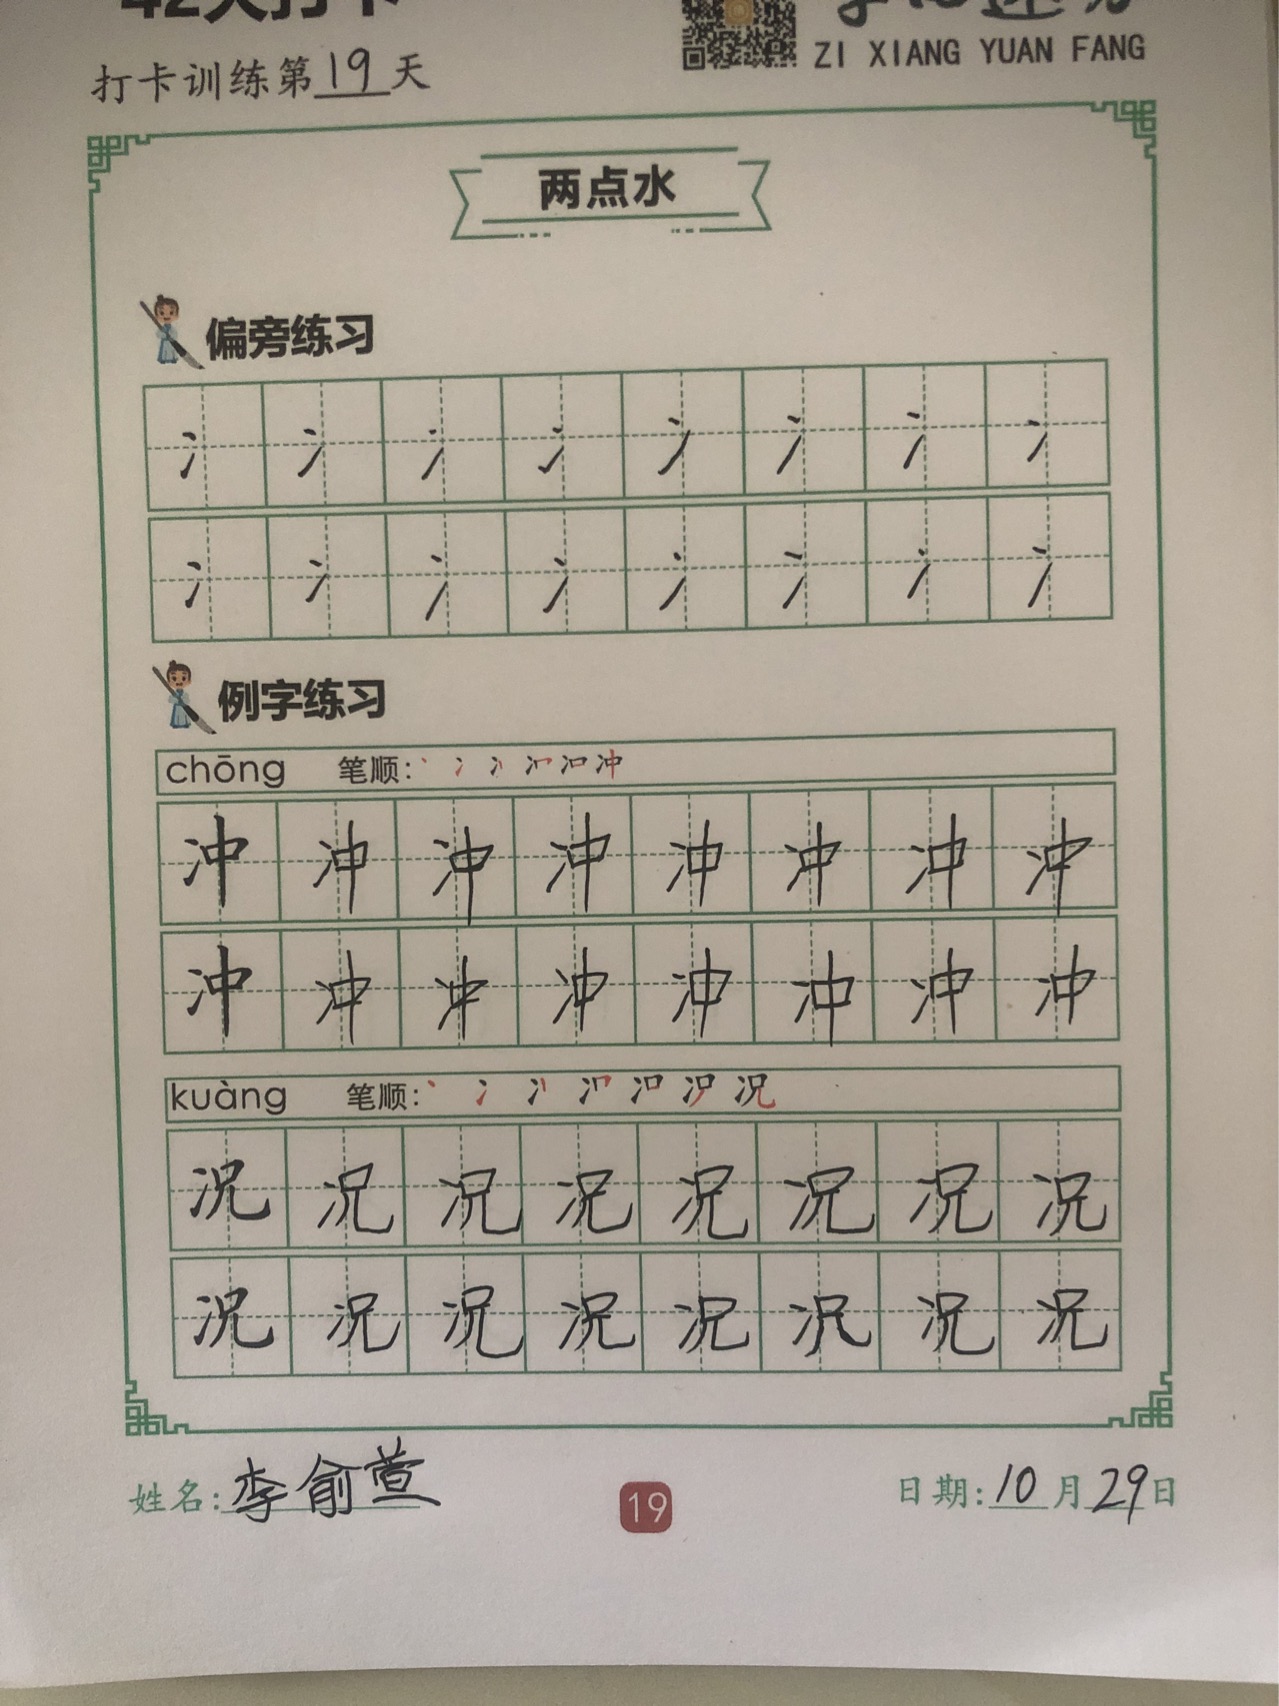 42天打卡
ZI XIANG YUAN FANG
打卡训练第19天
两点水
偏旁练习
冫冫冫冫冫冫冫冫
冫冫冫冫冫冫冫冫
例字练习
chōng 笔顺:
冲冲冲冲冲冲冲冲
冲冲冲冲冲冲冲冲
kuàng 笔顺:
况况况况况况况况
况况况况况况况况
姓名:李俞萱
19
日期:10月29日